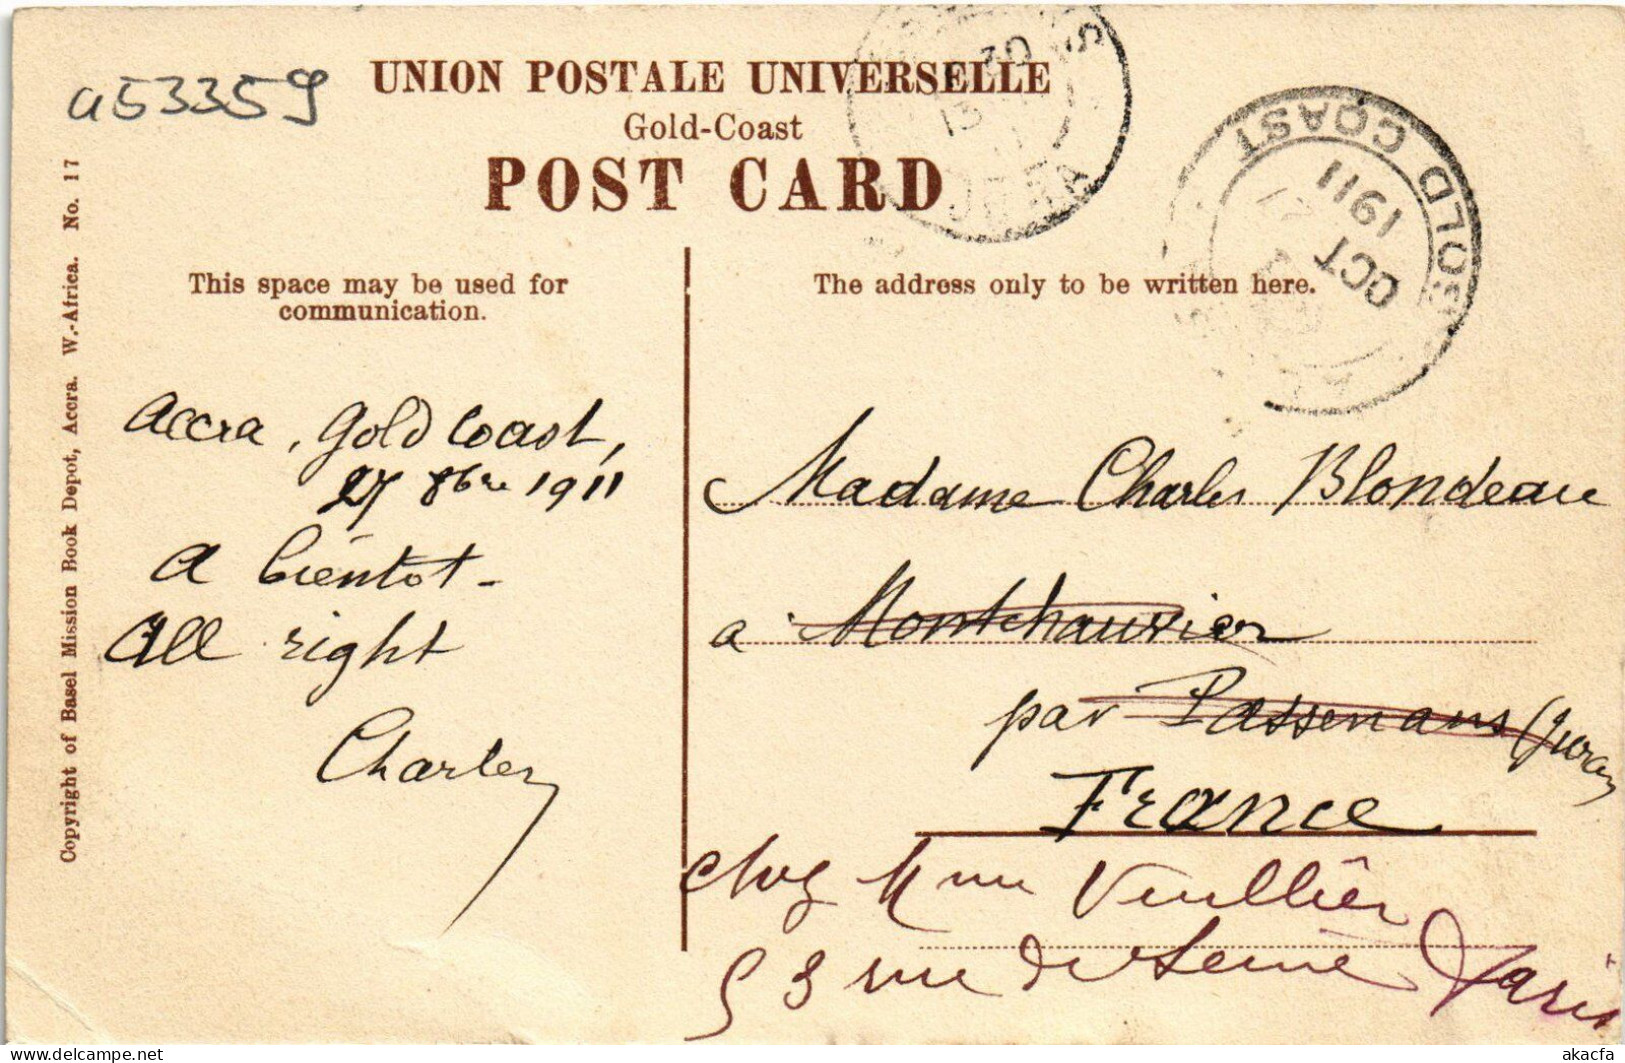 a53359
UNION POSTALE UNIVERSELLE
Gold-Coast
POST CARD
GOLD COAST
OCT
1911
30
13
JURA
This space may be used for
communication.
The address only to be written here.
Copyright of Basel Mission Book Depot, Accra. W.-Africa. No. 17
Accra, Gold Coast,
27 8bre 1911
A bientot -
All right
Charles
Madame Charles Blondeau
a Montchauvier
par Passenans (Jura)
France
chez Mme Veullier
53 rue de Seine Paris
akacfa